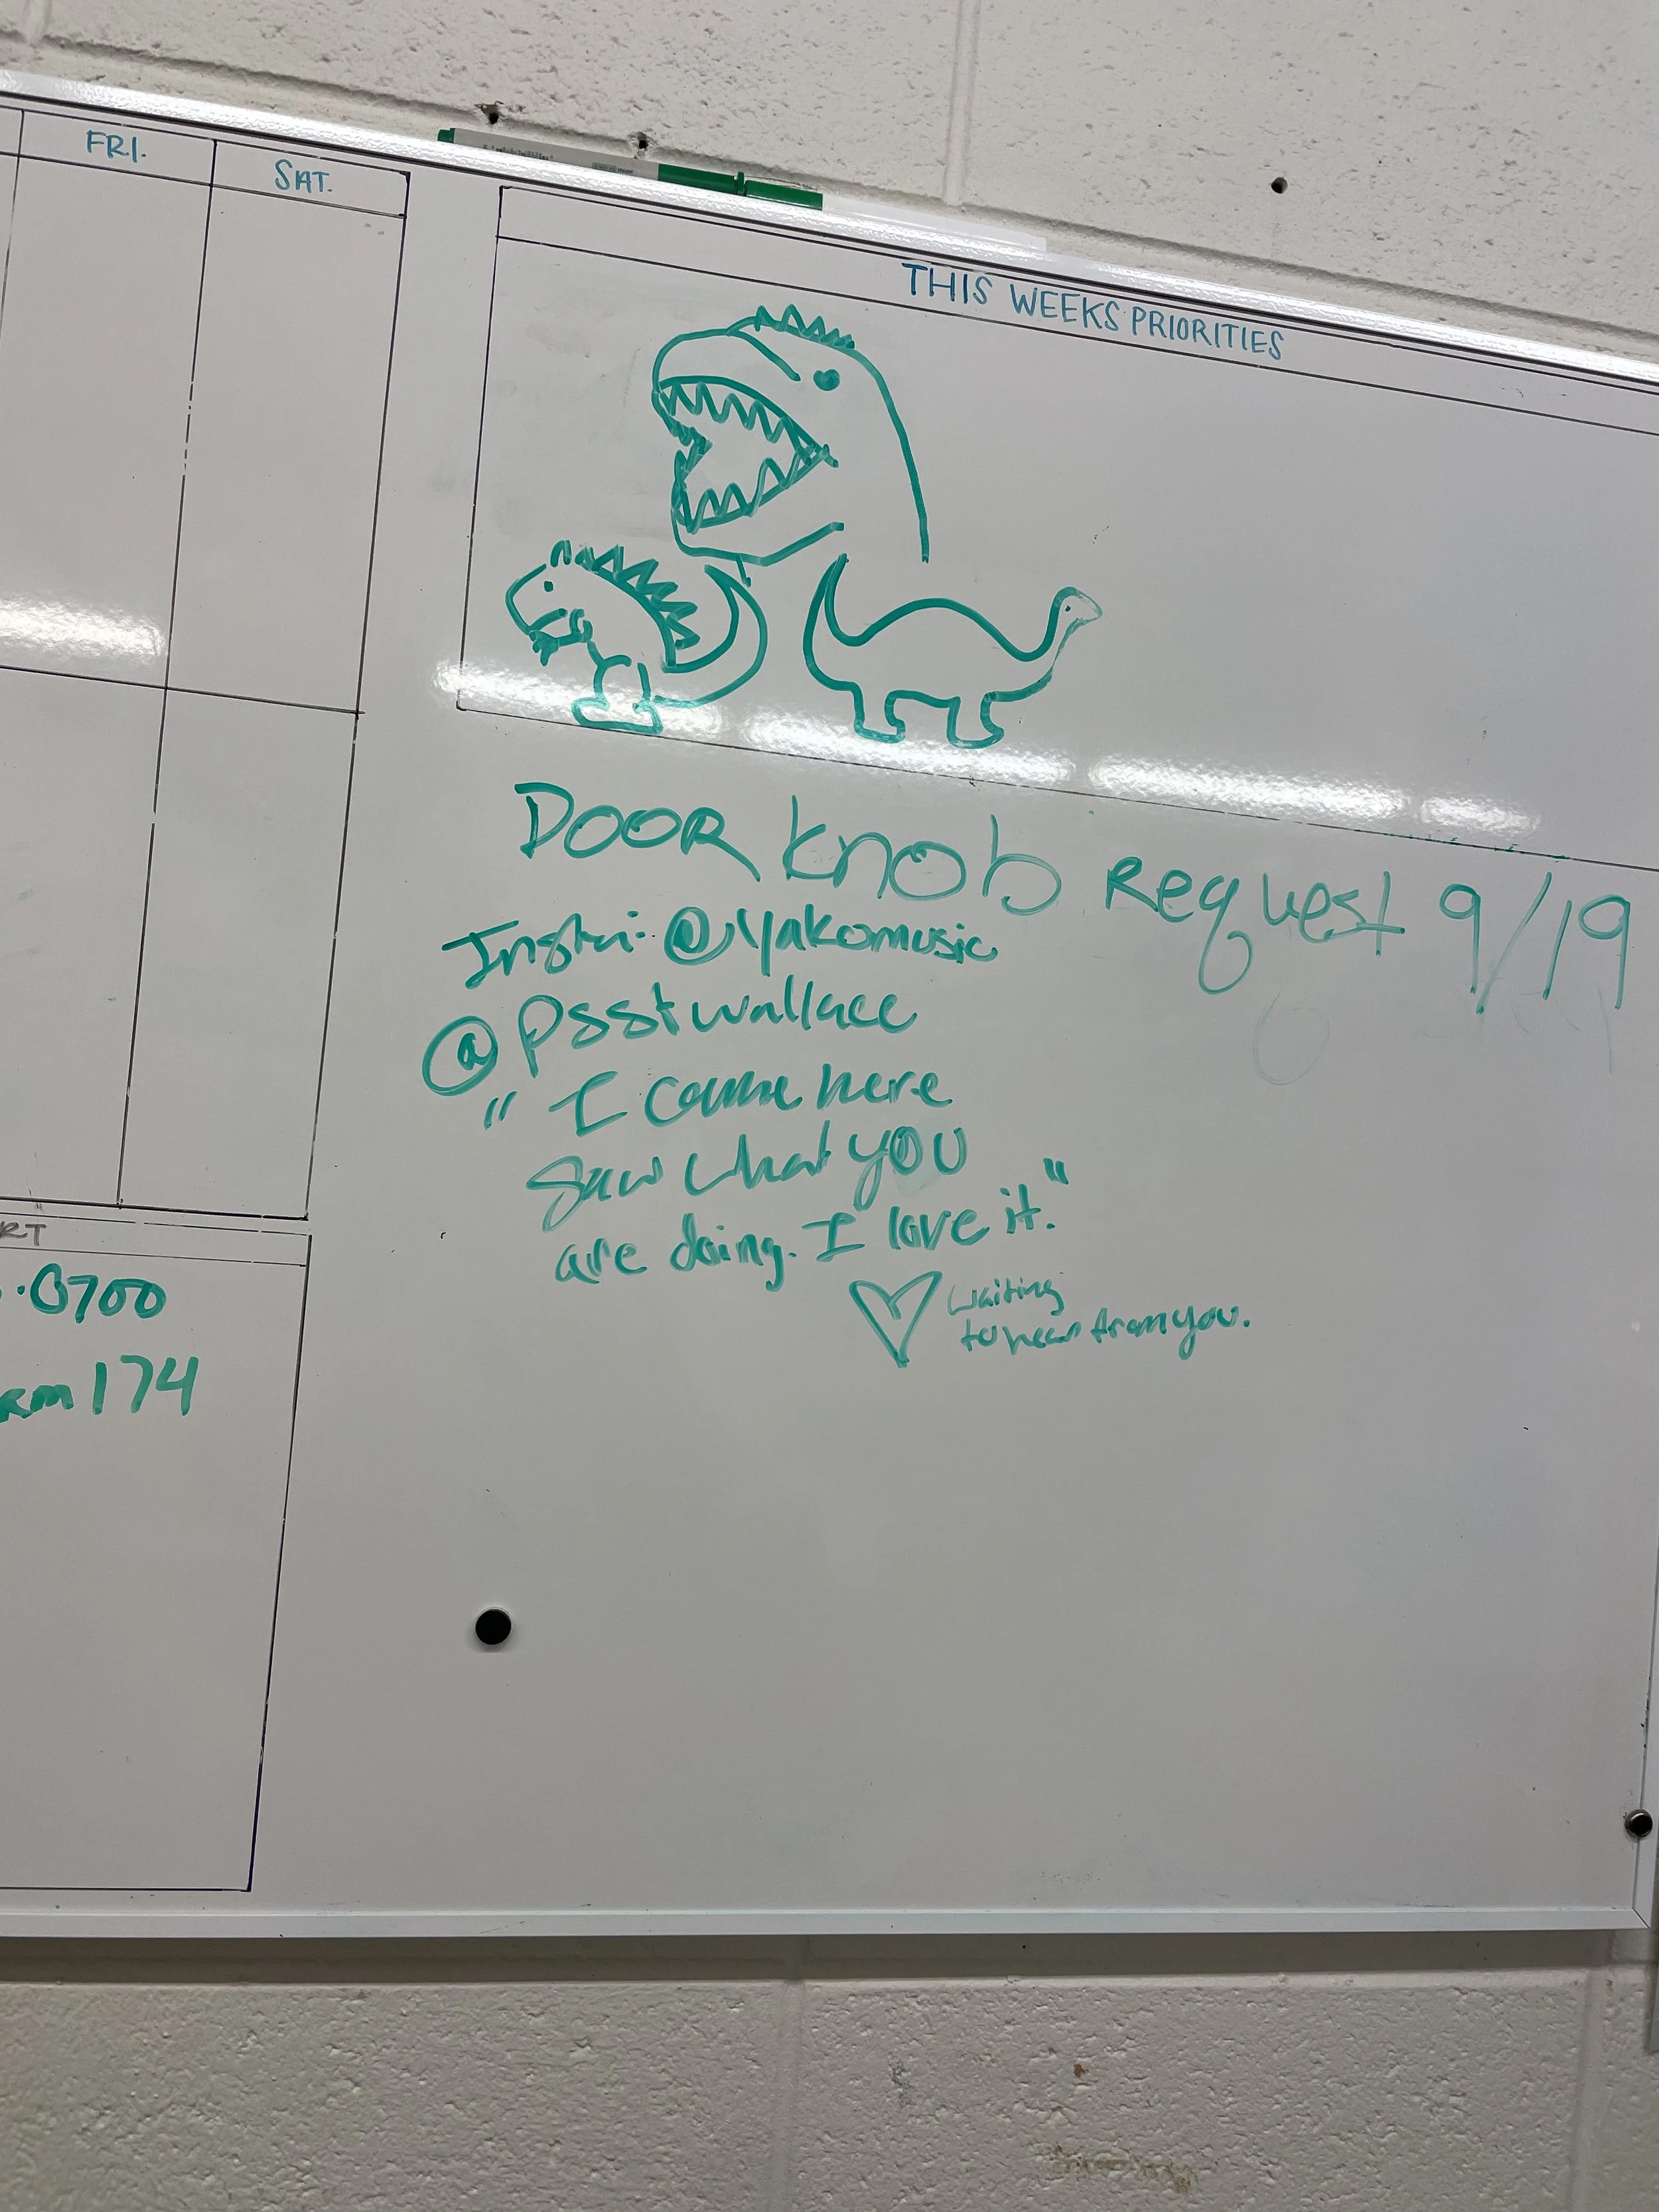 FRI.
SAT.
THIS WEEKS PRIORITIES
DOOR knob Request 9/19
Insta: @yakomusic
@psstwallace
" I came here
saw what you
are doing. I love it."
waiting
to hear from you.
RT
.0700
rm 174